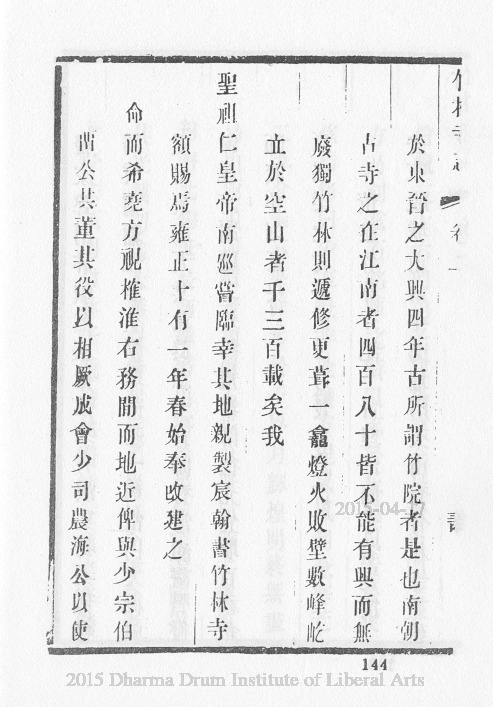 竹林寺志 卷一
於東晉之大興四年古所謂竹院者是也南朝
古寺之在江南者四百八十皆不能有興而無
廢獨竹林則遞修更葺一龕燈火敗壁數峰屹
立於空山者千三百載矣我
聖祖仁皇帝南巡嘗臨幸其地親製宸翰書竹林寺
額賜焉雍正十有一年春始奉改建之
命而希堯方視榷淮右務閒而地近俾與少宗伯
公共董其役以相厥成會少司農海公以使
144
2015-04-17
2015 Dharma Drum Institute of Liberal Arts